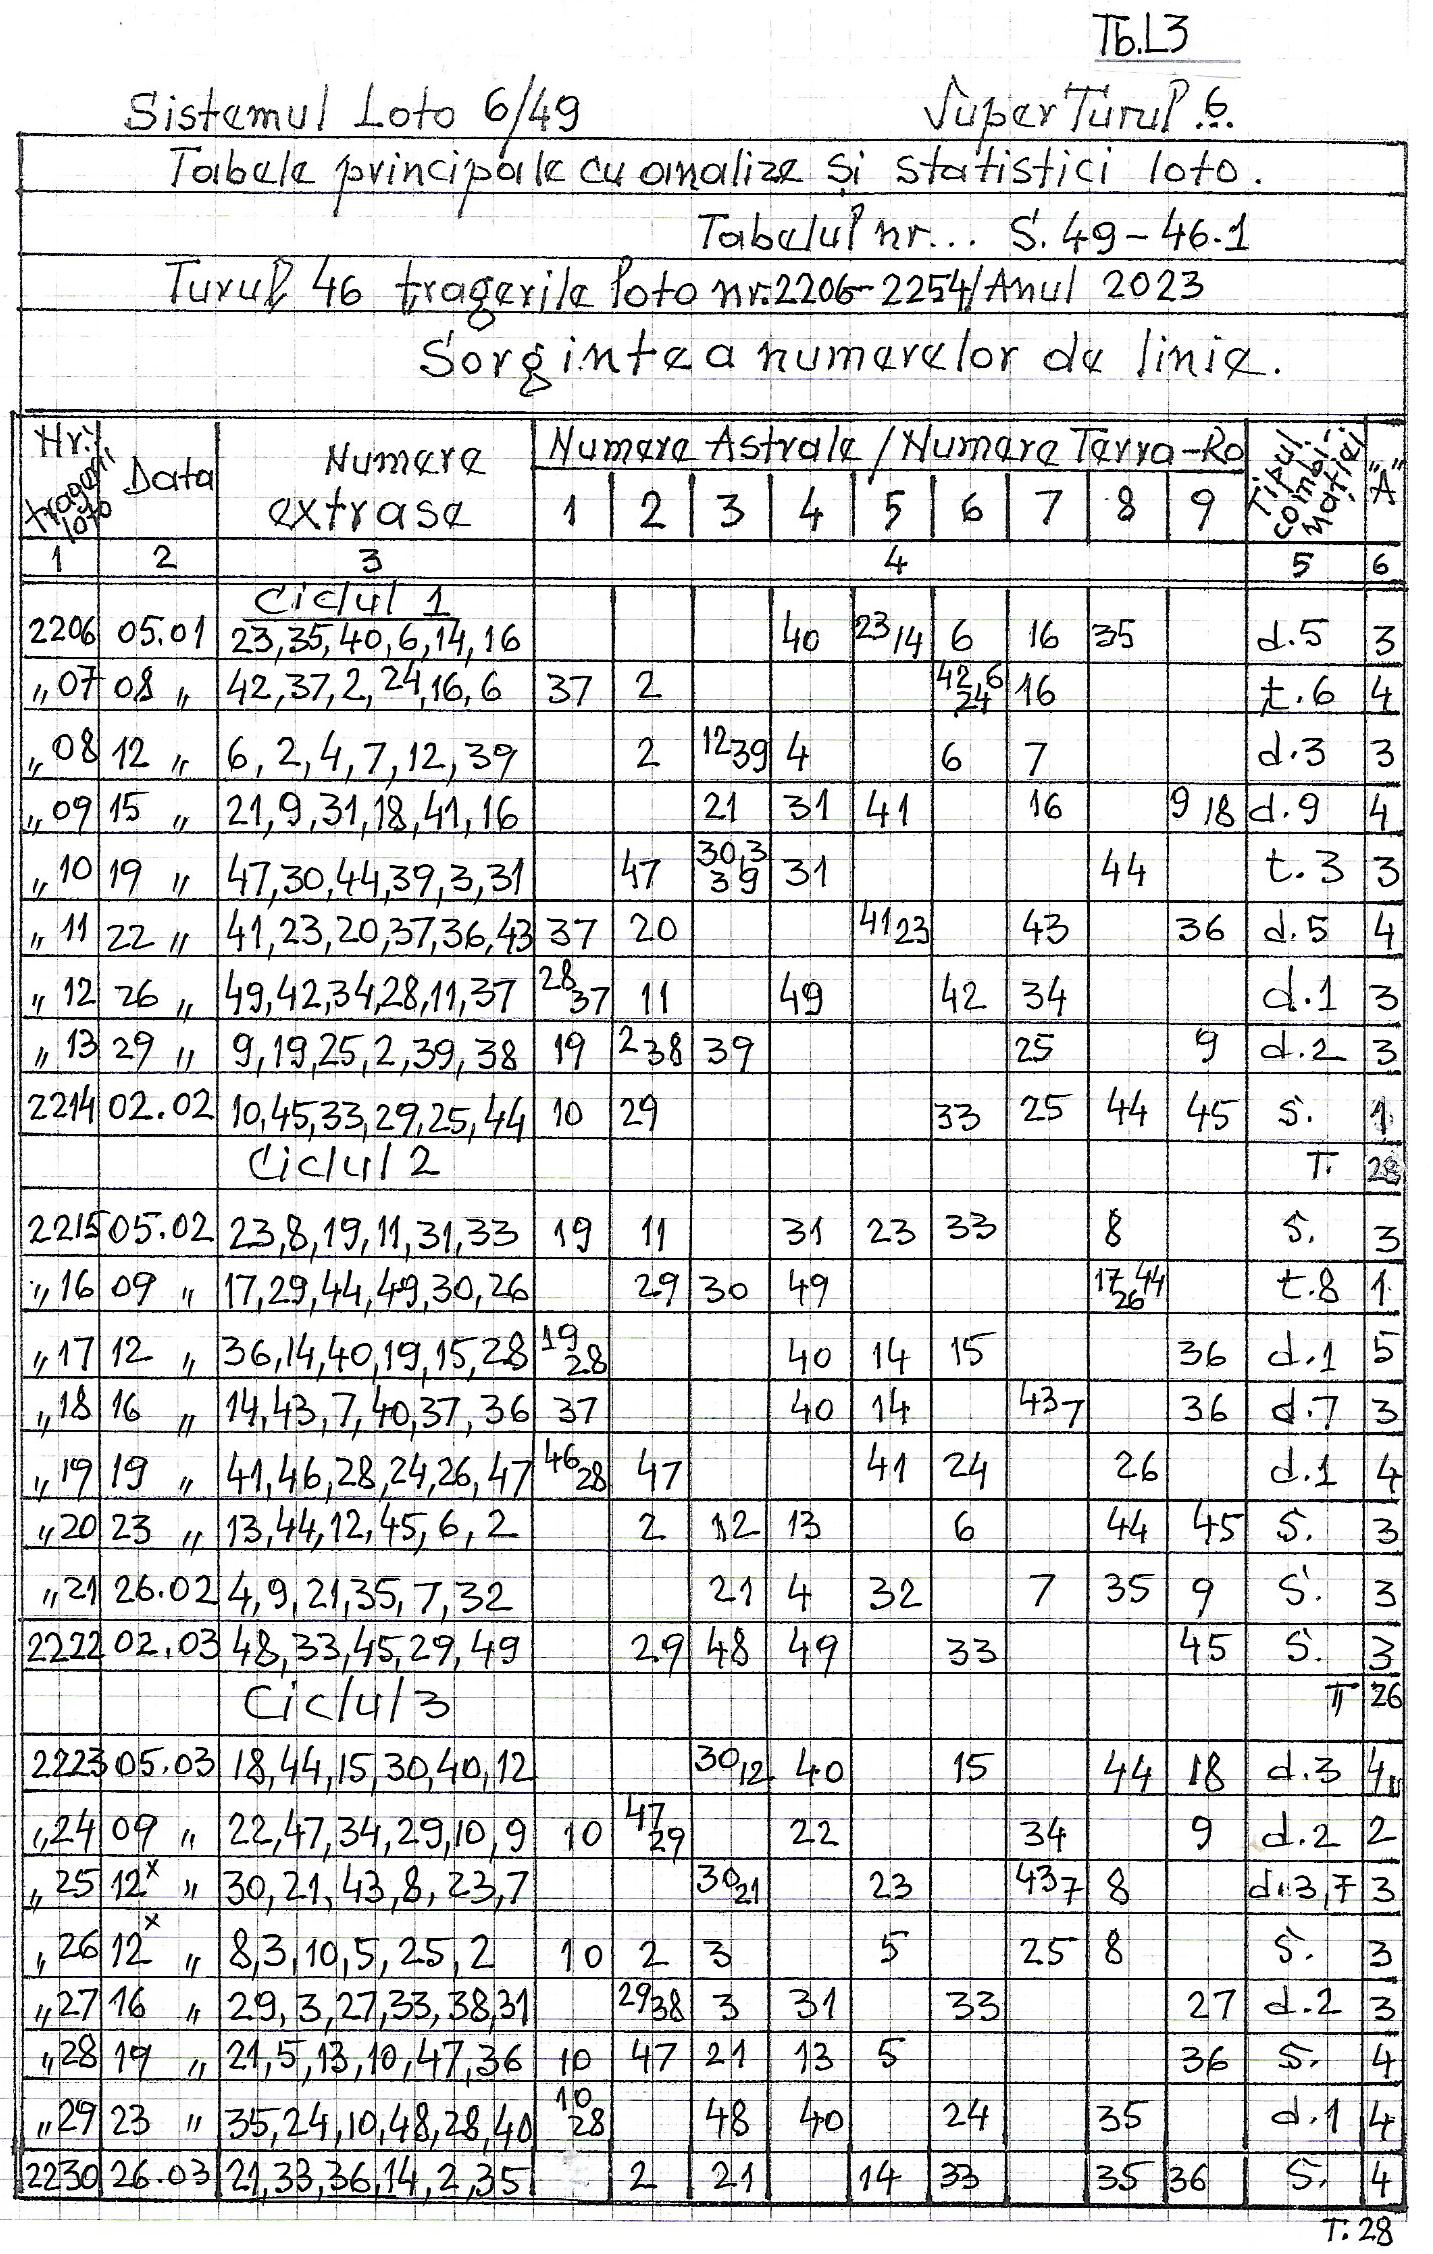 Tb.L3
Sistemul Loto 6/49 SuperTurul 6...
Tabele principale cu analize și statistici loto.
Tabelul nr... S. 49-46.1
Turul 46 tragerile loto nr.2206-2254/Anul 2023
Sorgintea numerelor de linie.
Nr. tragerii loto Data Numere extrase Numere Astrale / Numere Terra-Ro Tipul combinației "A"
1 2 3 4 5 6 7 8 9
1 2 3 4 5 6
Ciclul 1
2206 05.01 23,35,40,6,14,16 40 23/14 6 16 35 d.5 3
„07 08 „ 42,37,2,24,16,6 37 2 42,6 24 16 t.6 4
„08 12 „ 6,2,4,7,12,39 2 12 39 4 6 7 d.3 3
„09 15 „ 21,9,31,18,41,16 21 31 41 16 9 18 d.9 4
„10 19 „ 47,30,44,39,3,31 47 30,3 39 31 44 t.3 3
„11 22 „ 41,23,20,37,36,43 37 20 41 23 43 36 d.5 4
„12 26 „ 49,42,34,28,11,37 28 37 11 49 42 34 d.1 3
„13 29 „ 9,19,25,2,39,38 19 2 38 39 25 9 d.2 3
2214 02.02 10,45,33,29,25,44 10 29 33 25 44 45 S. 1
Ciclul 2 T. 28
2215 05.02 23,8,19,11,31,33 19 11 31 23 33 8 S. 3
„16 09 „ 17,29,44,49,30,26 29 30 49 17,44 26 t.8 1
„17 12 „ 36,14,40,19,15,28 19 28 40 14 15 36 d.1 5
„18 16 „ 14,43,7,40,37,36 37 40 14 43 7 36 d.7 3
„19 19 „ 41,46,28,24,26,47 46 28 47 41 24 26 d.1 4
„20 23 „ 13,44,12,45,6,2 2 12 13 6 44 45 S. 3
„21 26.02 4,9,21,35,7,32 21 4 32 7 35 9 S. 3
2222 02.03 48,33,45,29,49 29 48 49 33 45 S. 3
Ciclul 3 T 26
2223 05.03 18,44,15,30,40,12 30,12 40 15 44 18 d.3 4
„24 09 „ 22,47,34,29,10,9 10 47 29 22 34 9 d.2 2
„25 12x „ 30,21,43,8,23,7 30 21 23 43 7 8 d.3,7 3
„26 12x „ 8,3,10,5,25,2 10 2 3 5 25 8 S. 3
„27 16 „ 29,3,27,33,38,31 29 38 3 31 33 27 d.2 3
„28 19 „ 21,5,13,10,47,36 10 47 21 13 5 36 S. 4
„29 23 „ 35,24,10,48,28,40 10 28 48 40 24 35 d.1 4
2230 26.03 21,33,36,14,2,35 2 21 14 33 35 36 S. 4
T: 28